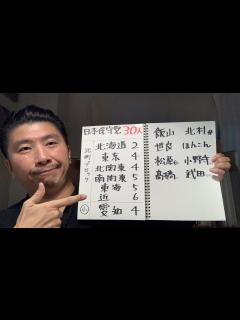 日本保守党 30人
比例ブロック
北海道 2
東京 4
北関東 4
南関東 5
東海 5
近 6
愛知 4
飯山 北村
世良 ほんこん
松原 小野寺
高橋 武田